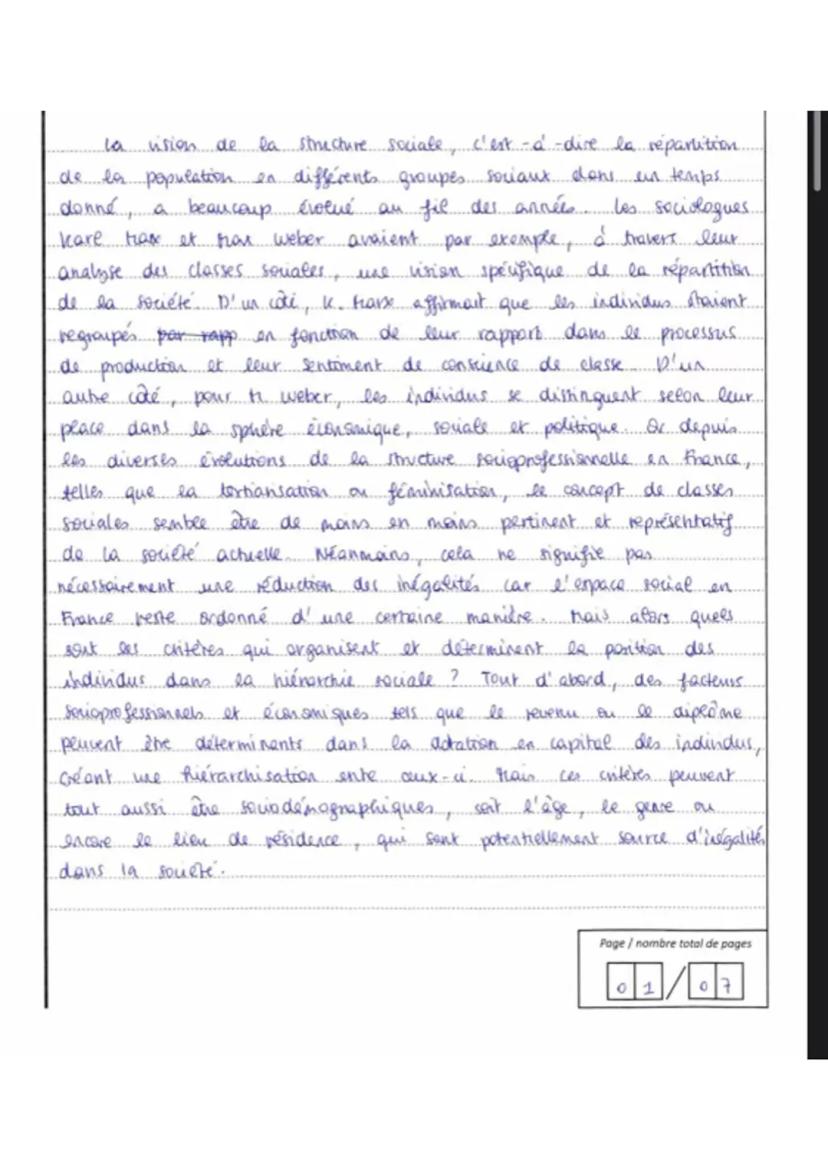 La vision de la structure sociale, c'est-à-dire la répartition
de la population en différents groupes sociaux dans un temps
donné, a beaucoup évolué au fil des années. Les sociologues
Karl Marx et Max Weber avaient par exemple, à travers leur
analyse des classes sociales, une vision spécifique de la répartition
de la société. D'un côté, K. Marx affirmait que les individus étaient
regroupés par rapp en fonction de leur rapport dans le processus
de production et leur sentiment de conscience de classe. D'un
autre côté, pour M. Weber, les individus se distinguent selon leur
place dans la sphère économique, sociale et politique. Or depuis
les diverses évolutions de la structure socioprofessionnelle en France,
telles que la tertiarisation ou féminisation, le concept de classes
sociales semble être de moins en moins pertinent et représentatif
de la société actuelle. Néanmoins, cela ne signifie pas
nécessairement une réduction des inégalités car l'espace social en
France reste ordonné d'une certaine manière. Mais alors quels
sont les critères qui organisent et déterminent la position des
individus dans la hiérarchie sociale ? Tout d'abord, des facteurs
socioprofessionnels et économiques tels que le revenu ou le diplôme
peuvent être déterminants dans la dotation en capital des individus,
créant une hiérarchisation entre ceux-ci. Mais ces critères peuvent
tout aussi être sociodémographiques, soit l'âge, le genre ou
encore le lieu de résidence, qui sont potentiellement source d'inégalité
dans la société.
Page / nombre total de pages
01/07